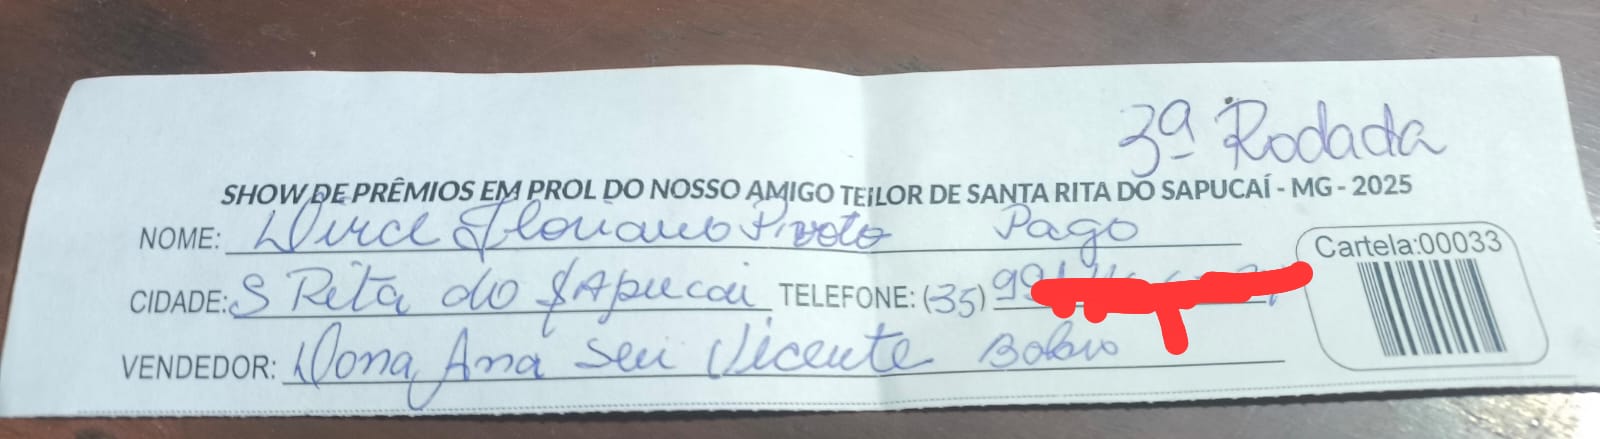 3ª Rodada
SHOW DE PRÊMIOS EM PROL DO NOSSO AMIGO TEILOR DE SANTA RITA DO SAPUCAÍ - MG - 2025
NOME: Dirce Floriano Pivoto Pago
CIDADE: S Rita do Sapucai TELEFONE: (35) 99
Cartela:00033
VENDEDOR: Dona Ana Seu Vicente